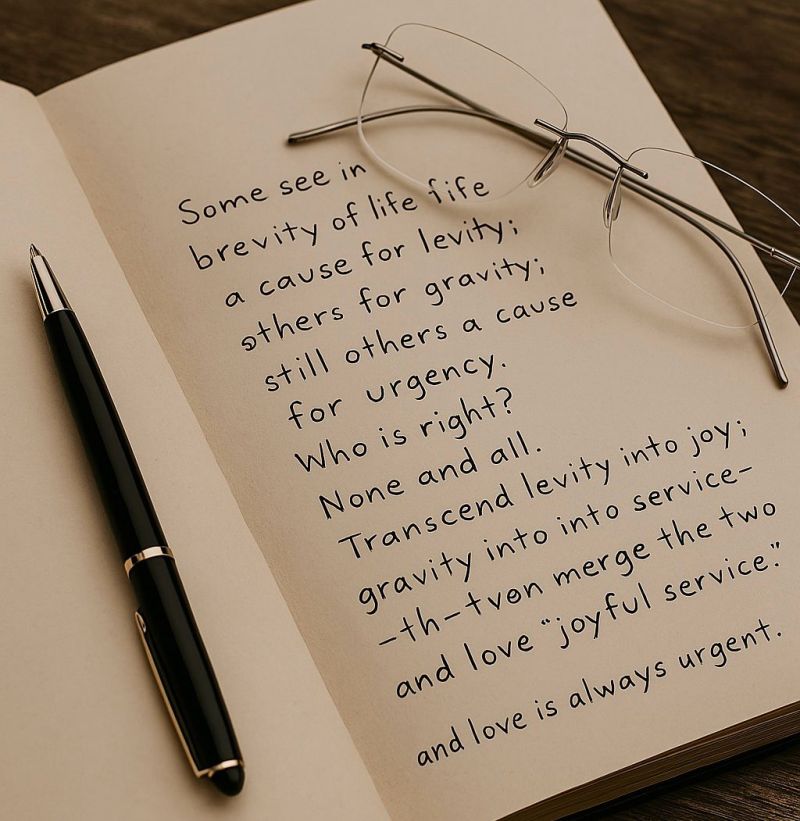 Some see in
brevity of life fife
a cause for levity;
others for gravity;
still others a cause
for urgency.
Who is right?
None and all.
Transcend levity into joy;
gravity into into service–
–th–tven merge the two
and love “joyful service.”
and love is always urgent.